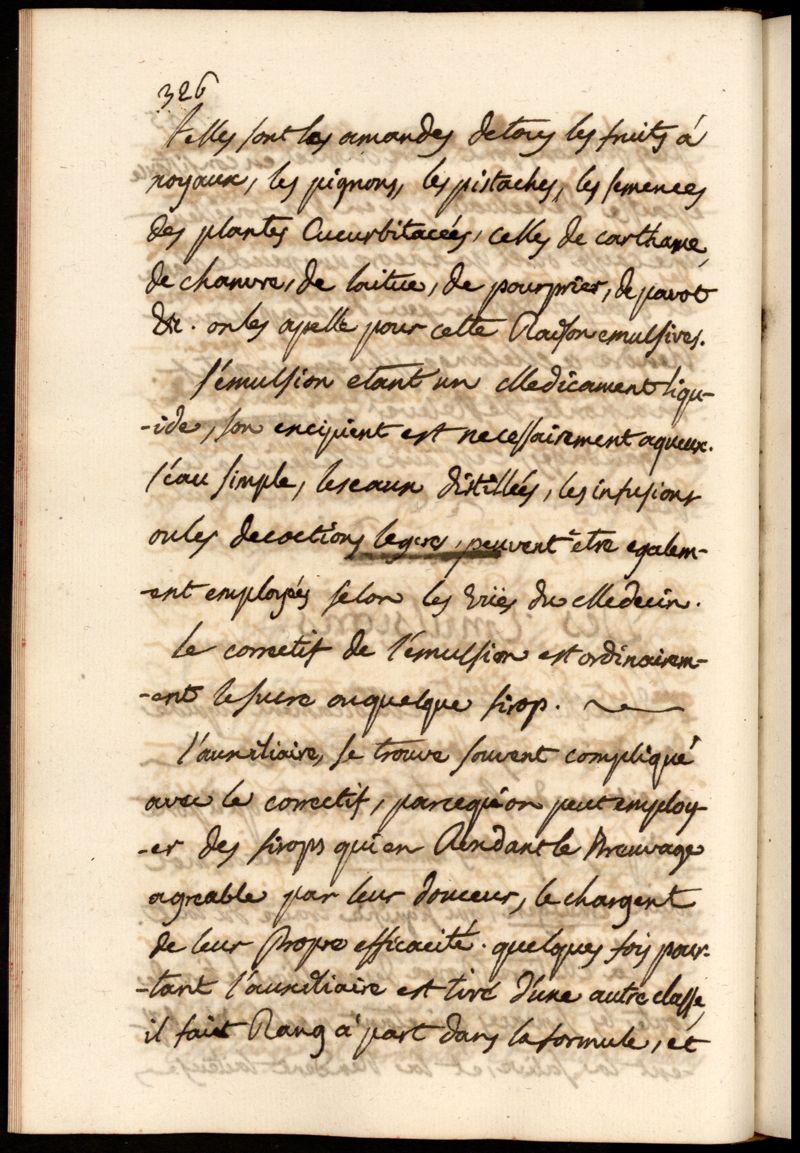 326
telles sont les amandes de tous les fruits á
noyaux, les pignons, les pistaches, les semences
des plantes Cucurbitaceés, celles de carthame,
de chanvre, de laitue, de pourprier, de pavot
&c. on les apelle pour cette Raison emulsives.
l'émulsion etant un Medicament liqu-
-ide, son excipient est necessairement aqueux.
l'éau simple, les eaux distilleés, les infusions
ou les decoctions legeres, peuvent être egalem-
-ent employés selon les vües du Medecin.
le correctif de l'émulsion est ordinairem-
-ent le sucre ou quelque sirop.
l'auxiliaire, se trouve souvent compliqué
avec le correctif, parcequ'on peut employ-
-er des sirops qui en Rendant le Breuvage
agreable par leur douceur, le chargent
de leur Propre efficacité. quelques fois pour-
-tant l'auxiliaire est tiré d'une autre classe,
il fait Rang á part dans la formule, et